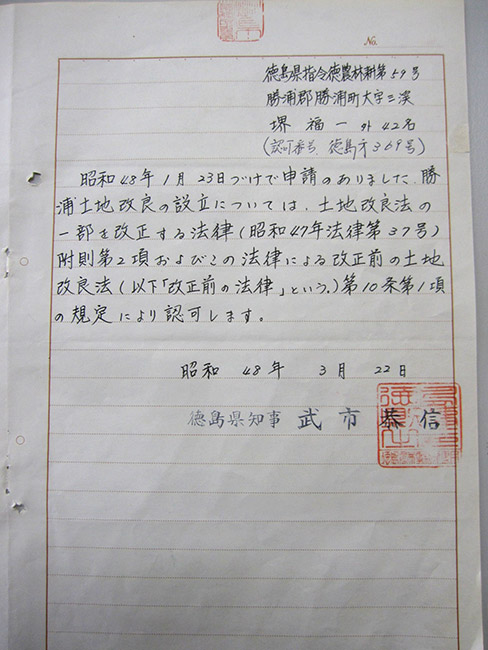 No.
徳島県指令徳農林耕第59号
勝浦郡勝浦町大字三溪
堺 福一 外42名
(認可番号 徳島才369号)
昭和48年1月23日づけで申請のありました、勝
浦土地改良の設立については、土地改良法の
一部を改正する法律(昭和47年法律第37号)
附則第2項およびこの法律による改正前の土地
改良法(以下「改正前の法律」という。)第10条第1項
の規定により認可します。
昭和 48年 3月 22日
徳島県知事 武市 恭信